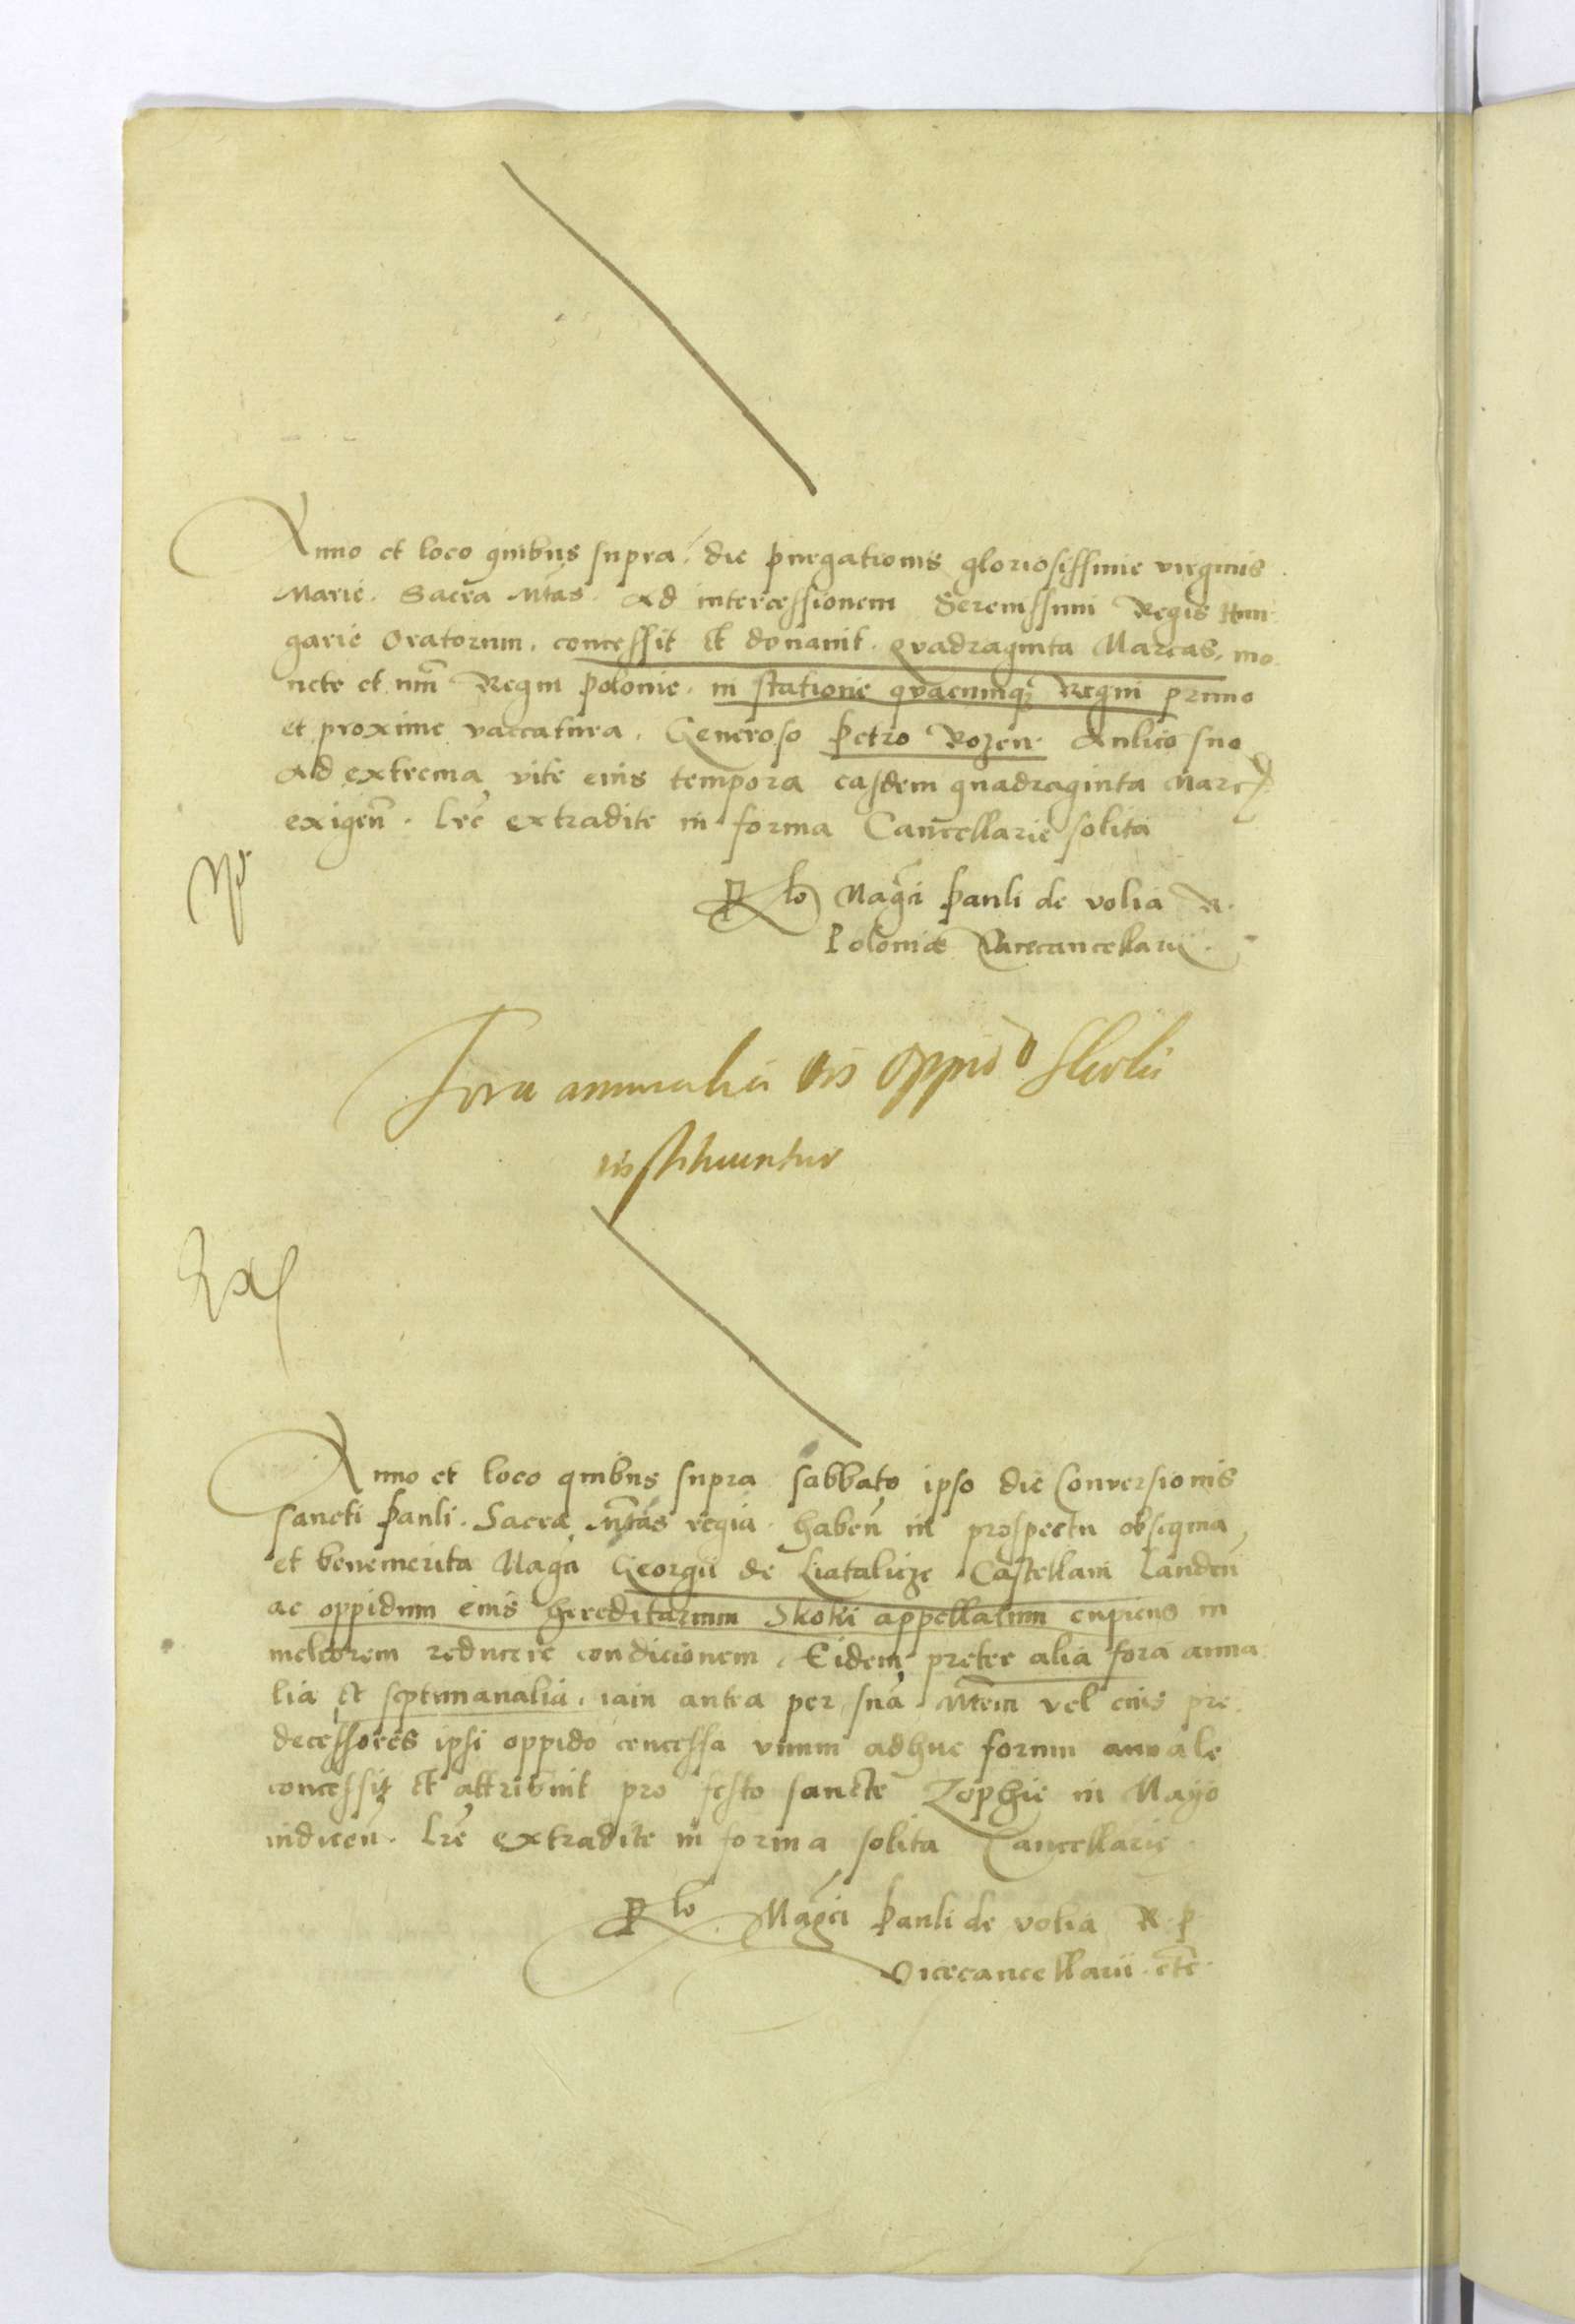 Anno et loco quibus supra. die purgationis gloriosissime virginis
Marie. Sacra Mtas. Ad intercessionem Serenissimi Regis Hun
garie Oratorum. concessit et donavit. quadraginta Marcas. mo
nete et num Regni Polonie. in statione quacumq Regni primo
et proxime vaccatura. Generoso Petro Rozen Aulico suo
Ad extrema vite eius tempora easdem quadraginta Marc
exigen. Lre extradite in forma Cancellarie solita
Rlo Magci Pauli de Volia R.
Polonie Vicecancellarii.
Fora annualia in oppido Skoki
instituuntur
Anno et loco quibus supra sabbato ipso die Conversionis
sancti Pauli. Sacra Mtas regia. haben in prospectu obsequia
et benemerita Magci Georgii de Latalicze Castellani Landen
ac oppidum eius hereditarium Skoki appellatum cupiens in
meliorem reducere condicionem. Eidem preter alia fora annua
lia et septimanalia. iam antea per suam Mtem vel eius pre
decessores ipsi oppido concessa unum adhuc forum annale
concessit et attribuit pro festo sancte Zophie in Mayo
indicen. Lre extradite in forma solita Cancellarie
Rlo. Magci Pauli de Volia R. P
Vicecancellarii. etc.